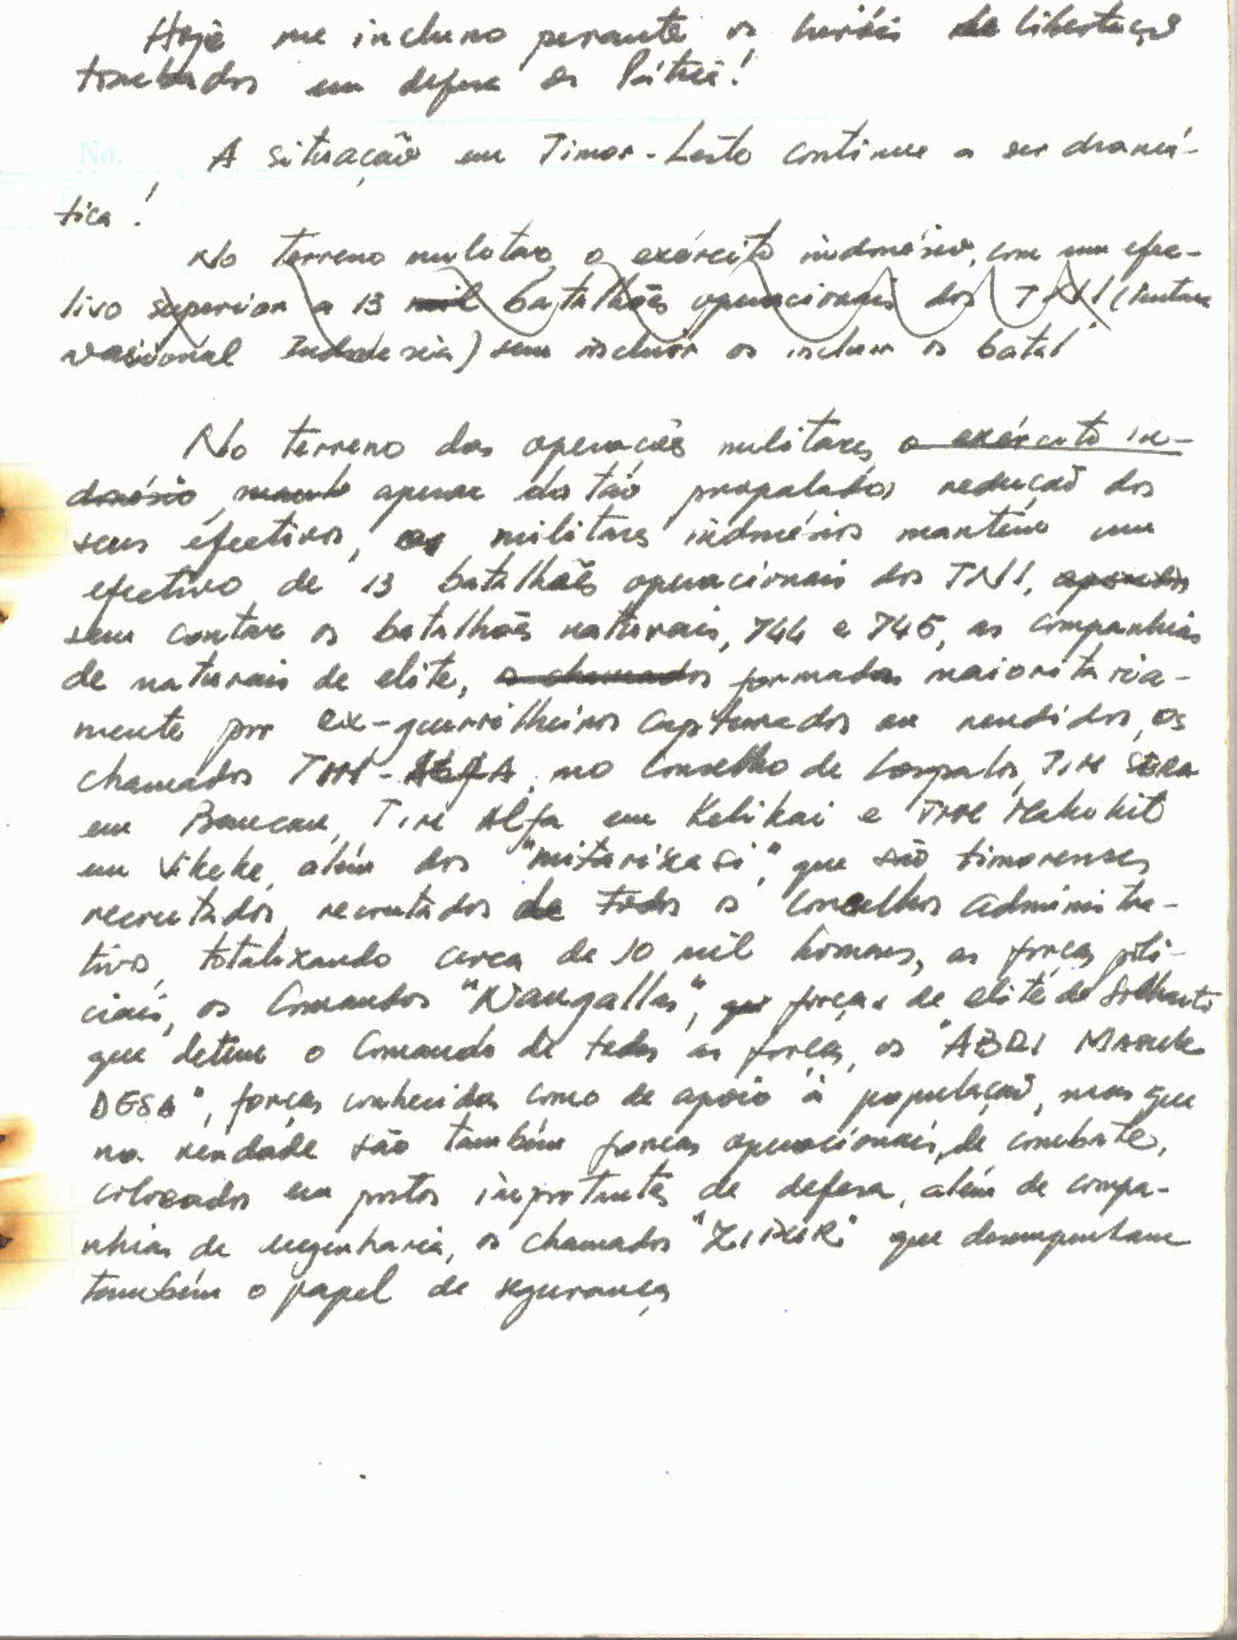 Hoje me inclino perante os heróis de libertação
tombados em defesa da Pátria!
A situação em Timor-Leste continua a ser dramá-
tica!
No terreno militar, o exército indonésio, com um efec-
tivo superior a 13 mil batalhões operacionais dos TNI (Tentara
Nasional Indonesia) sem incluir os incluir os batal
No terreno das operações militares, o exército in-
donésio, apesar da tão propalada redução dos
seus efectivos, os militares indonésios mantêm um
efectivo de 13 batalhões operacionais dos TNI,
sem contar os batalhões naturais, 744 e 745, as companhias
de naturais de elite, o chamados formadas maioritaria-
mente por ex-guerrilheiros capturados ou rendidos, os
chamados TIM-ALFA, no conselho de Lospalos, TIM SERA
em Baucau, TIM Alfa em Kelikai e TIM Makikit
em Vikeke, além dos "mitarixasi", que são timorenses
recrutados, recrutados de todos os Concelhos administra-
tivo, totalizando cerca de 10 mil homens, as forças poli-
ciais, os Comandos "Nangallas", que forças de elite de
que detém o Comando de todas as forças, os "ABRI MASUK
DESA", forças conhecidas como de apoio à população, mas que
na verdade são também forças operacionais, de combate,
colocados em postos importantes de defesa, além de compa-
nhias de engenharia, os chamados "ZIPUR" que desempenham
também o papel de segurança